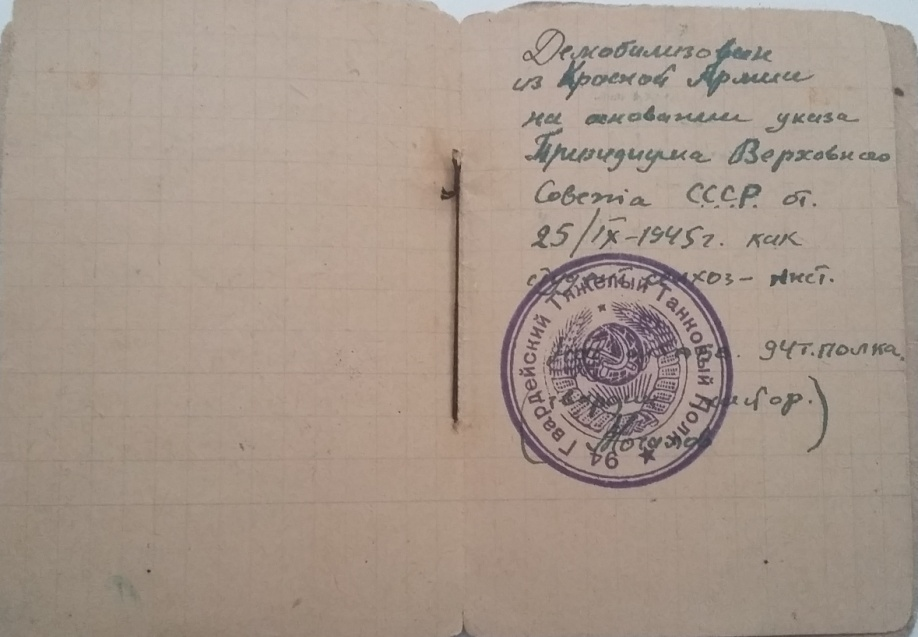 Демобилизован
из Красной Армии
на основании указа
Президиума Верховного
Совета С.С.С.Р. от.
25/IX-1945г. как
студент сельхоз- инст.
94т.полка.
94 Гвардейский Тяжелый Танковый Полк